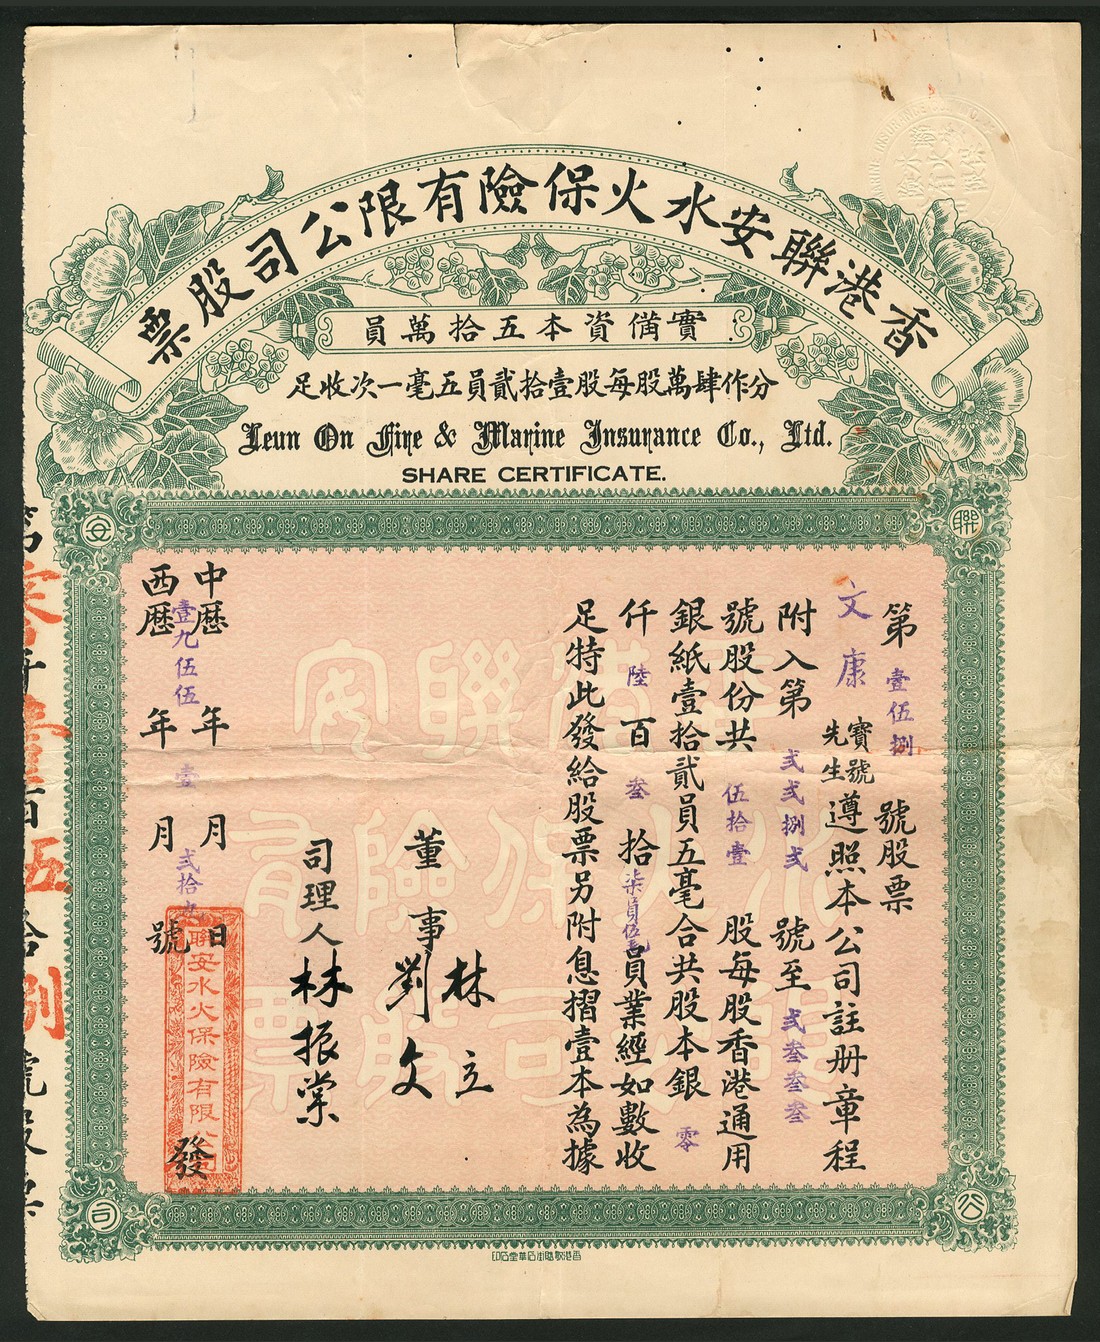 香港聯安水火保險有限公司股票
實備資本五拾萬員
分作肆萬股每股壹拾貳員五毫一次收足
Leun On Fire & Marine Insurance Co., Ltd.
SHARE CERTIFICATE.
聯
安
公
司
第壹伍捌號股票
文康寶號先生遵照本公司註册章程
附入第弍弍捌弍號至弍叁叁叁
號股份共伍拾壹股每股香港通用
銀紙壹拾貳員五毫合共股本銀零
仟陸百叁拾柒員伍毛員業經如數收
足特此發給股票另附息摺壹本為據
董事林立
劉文
司理人林振棠
中歷年月日
西歷壹九伍伍年壹月弍拾九號發
聯安水火保險有限公司
香港聯安
水火保險有
限公司股票